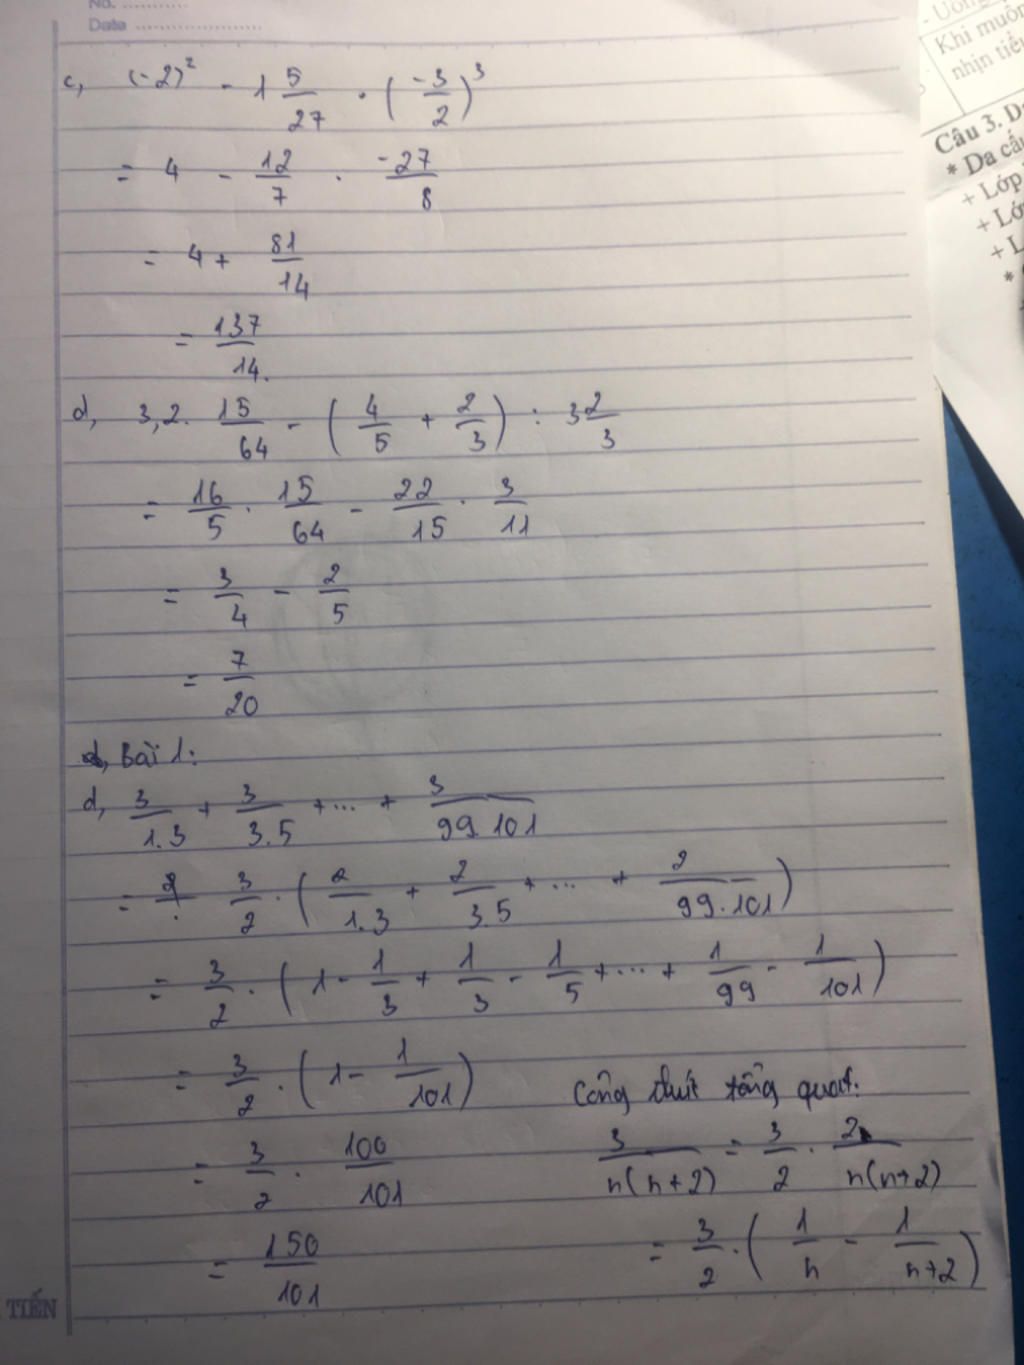 No. ............
Data ......................
c, (-2)² - 1 5/27 . (-3/2)³
= 4 - 12/7 . -27/8
= 4 + 81/14
= 137/14.
d, 3,2 . 15/64 - (4/5 + 2/3) : 3 2/3
= 16/5 . 15/64 - 22/15 . 3/11
= 3/4 - 2/5
= 7/20
Bài 1:
d, 3/1.3 + 3/3.5 + ... + 3/99.101
= 3/2 . (2/1.3 + 2/3.5 + ... + 2/99.101)
= 3/2 . (1 - 1/3 + 1/3 - 1/5 + ... + 1/99 - 1/101)
= 3/2 . (1 - 1/101)
= 3/2 . 100/101
= 150/101
Công thức tổng quát:
3/n(n+2) = 3/2 . 2/n(n+2)
= 3/2 . (1/n - 1/n+2)
TIẾN
Khi muốn
nhịn tiểu
Câu 3.
* Da cấu
+ Lớp
+ Lớ
+ L
*